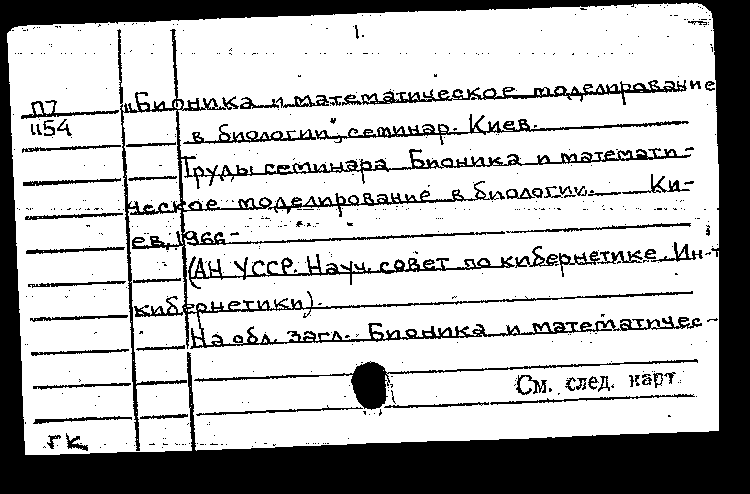 1.
П7 „Бионика и математическое моделирование
1154 в биологии", семинар. Киев.
Труды семинара Бионика и математи-
ческое моделирование в биологии. Ки-
ев, 1966-
(АН УССР. Науч. совет по кибернетике. Ин-т
кибернетики).
На обл. загл.: Бионика и математичес-
См. след. карт.
ГК